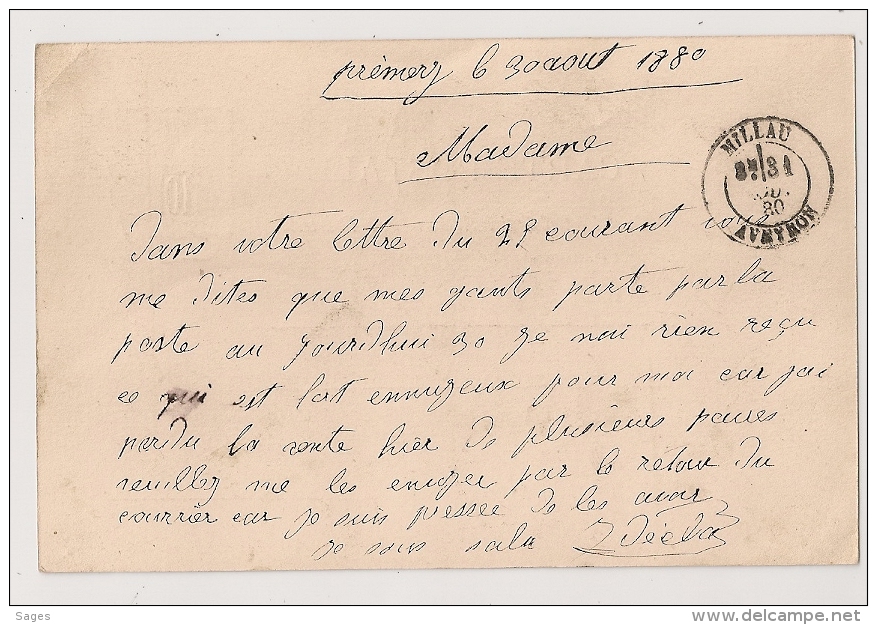 prémery le 30 aout 1880
Madame
MILLAU
31
80
AVEYRON
Dans votre lettre du 22 courant vous
me dites que mes gants parte par la
poste au jourdhui 30 je nai rien reçu
ce qui est fort ennuyeux pour moi car jai
perdu la vente hier de plusieurs paires
veuillez me les envoyer par le retour du
courrier car je suis pressée de les avoir
je vous salu
Sages
delcampe.net